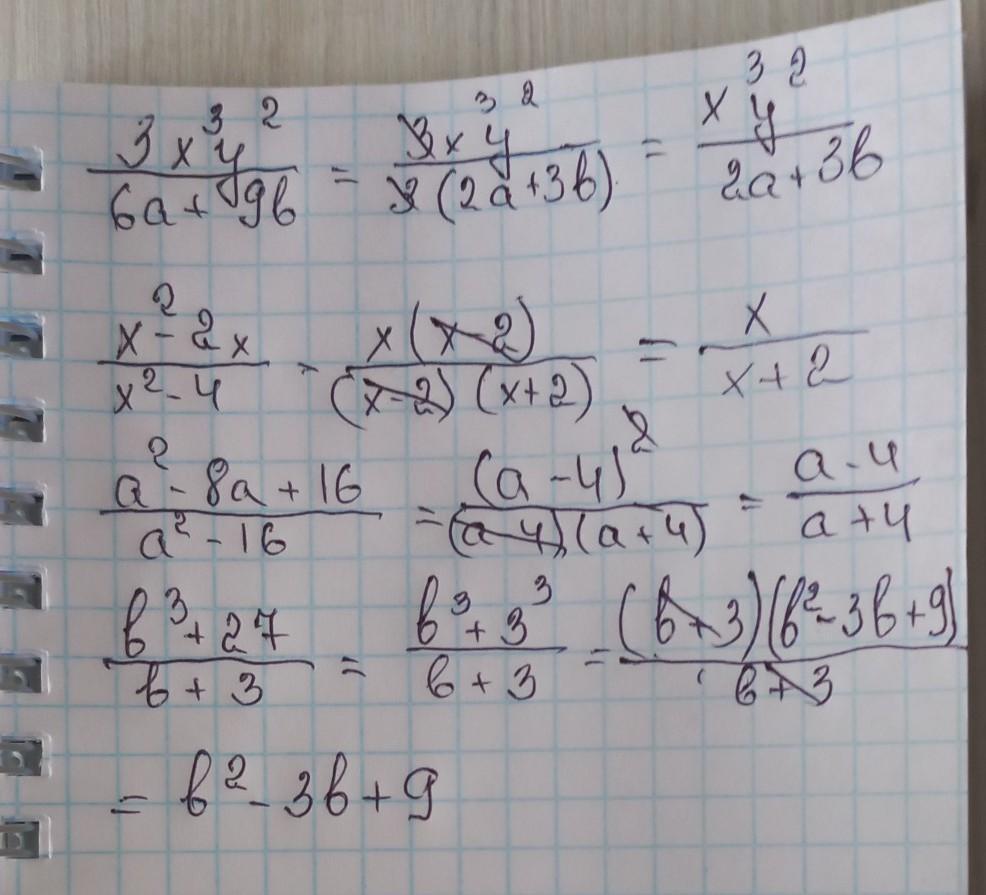 (3x³y²)/(6a+9b) = (3x³y²)/(3(2a+3b)) = (x³y²)/(2a+3b)
(x²-2x)/(x²-4) = (x(x-2))/((x-2)(x+2)) = x/(x+2)
(a²-8a+16)/(a²-16) = (a-4)²/((a-4)(a+4)) = (a-4)/(a+4)
(b³+27)/(b+3) = (b³+3³)/(b+3) = ((b+3)(b²-3b+9))/(b+3)
= b²-3b+9